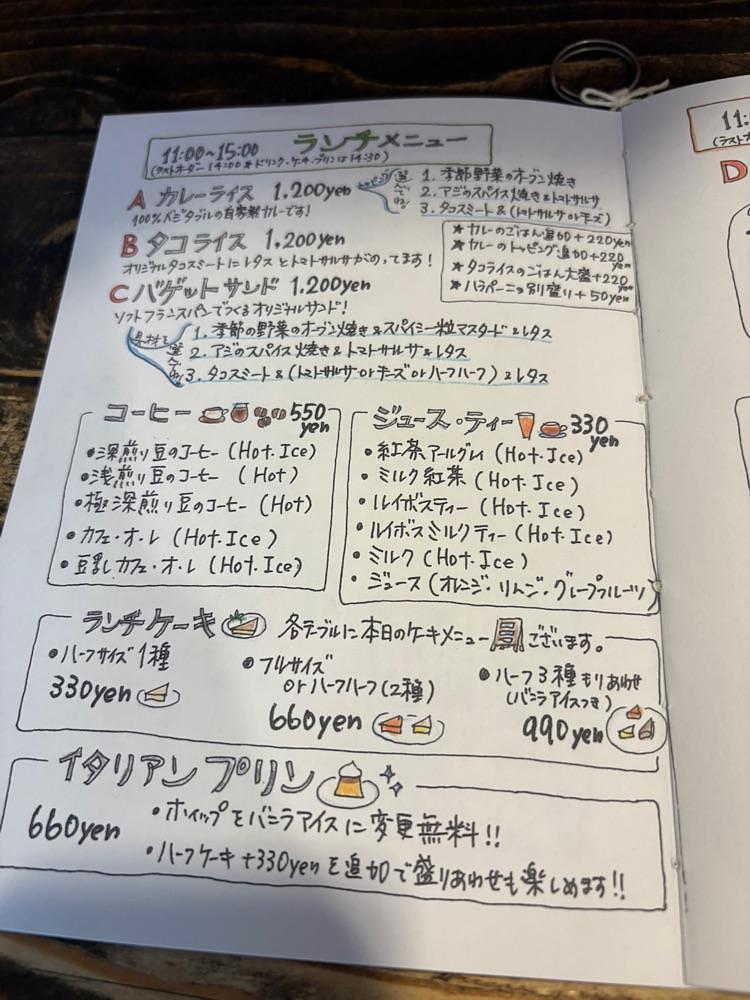 11:00~15:00 ランチメニュー
(ラストオーダー 14:00 * ドリンク・ケーキ・プリンは14:30)
A カレーライス 1,200yen
100%ベジタブルの自家製カレーです!
選んでね!
1. 季節野菜のオーブン焼き
2. アジのスパイス焼き&トマトサルサ
3. タコスミート&(トマトサルサorチーズ)
B タコライス 1,200yen
オリジナルタコスミートにレタスとトマトサルサがのってます!
★カレーのごはん追加+220yen
★カレーのトッピング追加+220yen
★タコライスのごはん大盛+220yen
★ハラペーニョ別盛り+50yen
C バゲットサンド 1,200yen
ソフトフランスパンでつくるオリジナルサンド!
具材を選んでね
1. 季節の野菜のオーブン焼き&スパイシー粒マスタード&レタス
2. アジのスパイス焼き&トマトサルサ&レタス
3. タコスミート&(トマトサルサorチーズorハーフハーフ)&レタス
コーヒー 550yen
•深煎り豆のコーヒー (Hot.Ice)
•浅煎り豆のコーヒー (Hot)
•極深煎り豆のコーヒー (Hot)
•カフェ・オ・レ (Hot.Ice)
•豆乳カフェ・オ・レ (Hot.Ice)
ジュース・ティー 330yen
•紅茶アールグレイ (Hot.Ice)
•ミルク紅茶 (Hot.Ice)
•ルイボスティー (Hot.Ice)
•ルイボスミルクティー (Hot.Ice)
•ミルク (Hot.Ice)
•ジュース (オレンジ・りんご・グレープフルーツ)
ランチケーキ 各テーブルに本日のケーキメニューございます。
•ハーフサイズ1種
330yen
•フルサイズ
orハーフハーフ(2種)
660yen
•ハーフ3種もりあわせ
(バニラアイスつき)
990yen
イタリアンプリン
660yen
•ホイップをバニラアイスに変更無料!!
•ハーフケーキ+330yenを追加で盛りあわせも楽しめます!!
11:
(ラスト
D